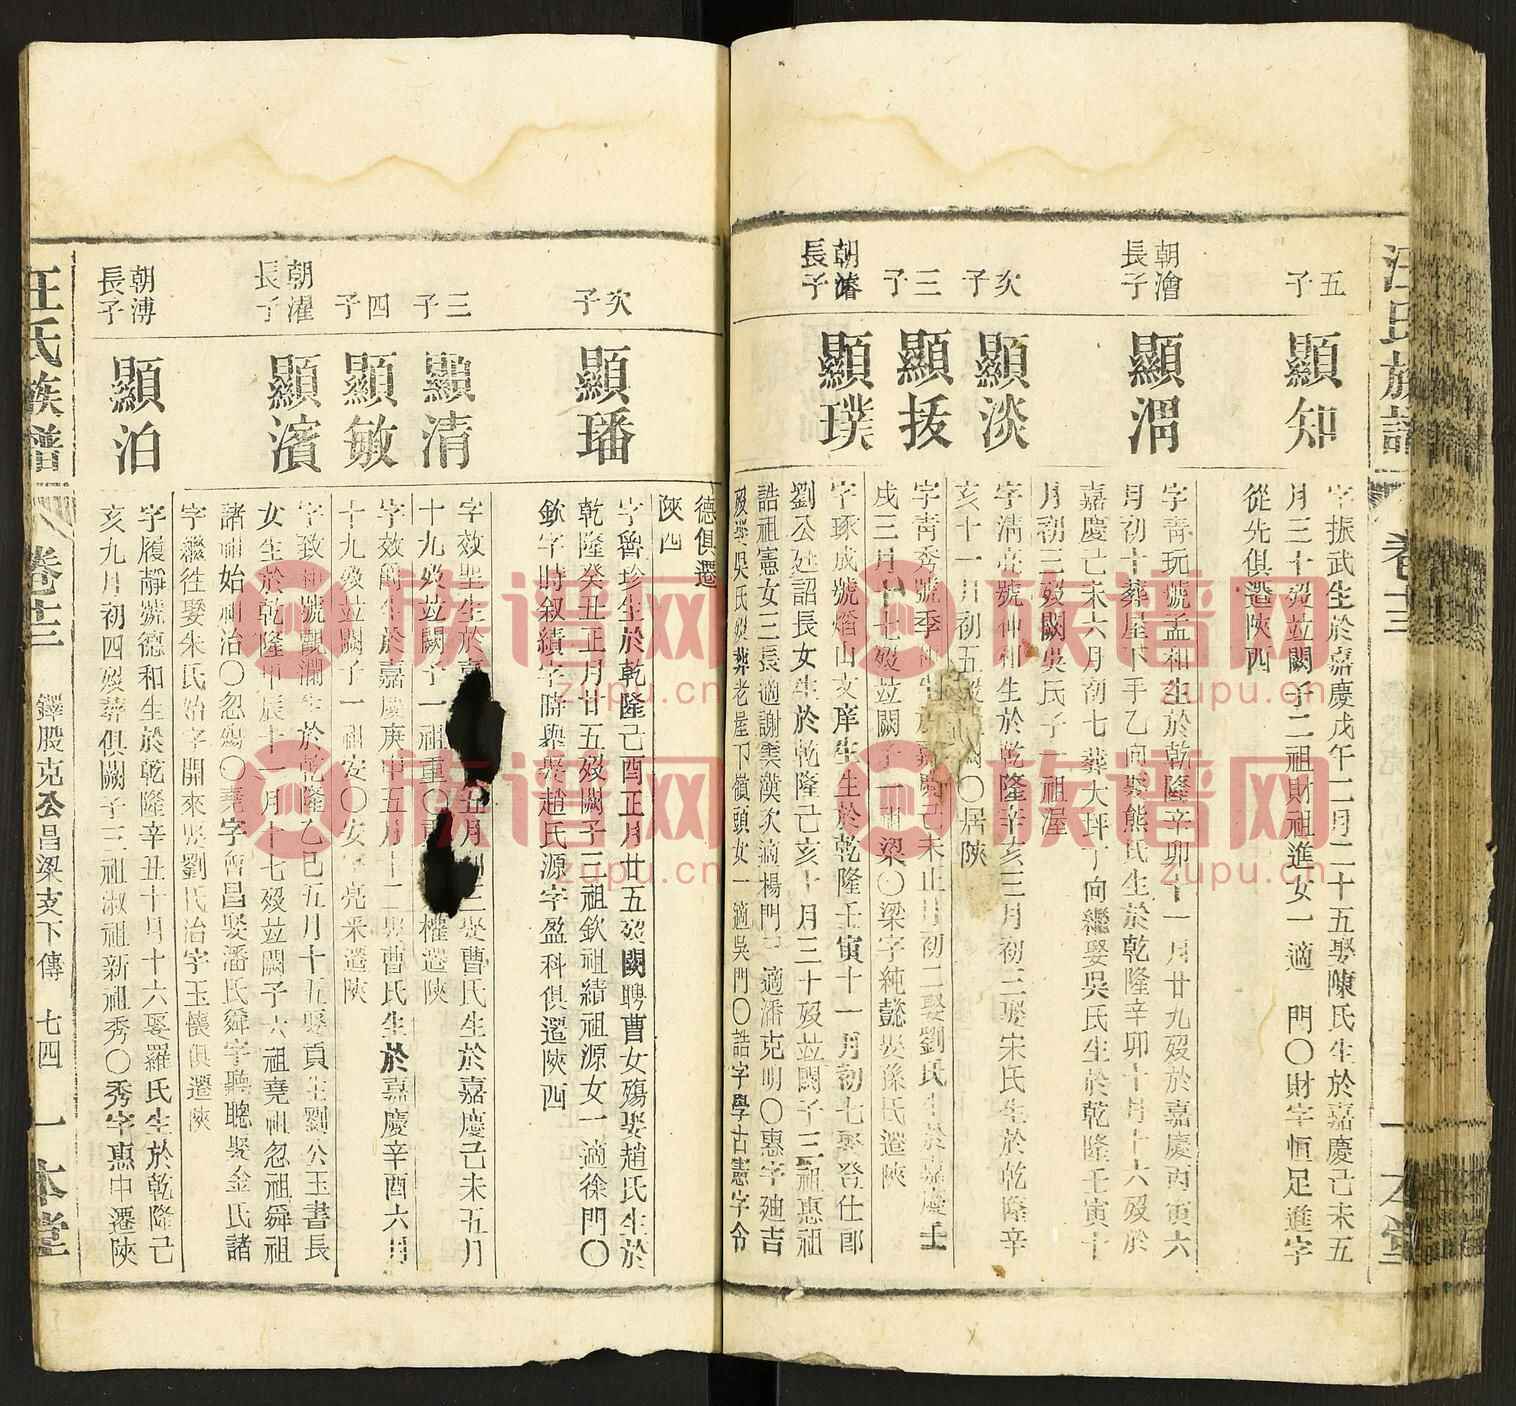 汪氏族譜
卷十三
一本堂
五子
顯知
字振武生於嘉慶戊午二月二十五娶陳氏生於嘉慶己未五
月三十歿竝闕子二祖財祖進女一適　門〇財字恒足進字
從先俱遷陝西
朝澮長子
顯渭
字青玩號孟和生於乾隆辛卯十一月廿九歿於嘉慶丙寅六
月初十葬屋下手乙向娶熊氏生於乾隆辛卯十月十六歿於
嘉慶己未六月初七葬大坪丁向繼娶吳氏生於乾隆壬寅十
月初三歿闕吳氏子一祖渥
次子
顯淡
字清亮號仲和生於乾隆辛亥三月初三娶宋氏生於乾隆辛
亥十一月初五歿　闕〇居陝
三子
顯拔
字青秀號季和生於嘉慶己未正月初二娶劉氏生於嘉慶壬
戌三月十七歿竝闕子一祖梁〇梁字純懿娶孫氏遷陝
朝濬長子
顯璞
字琢成號熖山文庠生生於乾隆壬寅十一月初七娶登仕郎
劉公廷詔長女生於乾隆己亥十月三十歿竝闕子三祖惠祖
誥祖憲女三長適謝雲漢次適楊門三適潘克明〇惠字廸吉
歿娶吳氏歿葬老屋下嶺頭女一適吳門〇誥字學古憲字令
德俱遷
陝西
次子
顯璠
字魯珍生於乾隆己酉正月廿五歿闕聘曹女殤娶趙氏生於
乾隆癸丑正月廿五歿闕子三祖欽祖績祖源女一適徐門〇
欽字時叙績字時舉娶趙氏源字盈科俱遷陝西
三子
顯清
字效聖生於嘉　五月初三娶曹氏生於嘉慶己未五月
十九歿竝闕子一祖重〇重　權遷陝
四子
顯敏
字效爵生於嘉慶庚申五月十二娶曹氏生於嘉慶辛酉六月
十九歿竝闕子一祖安〇安字亮釆遷陝
朝濯長子
顯濱
字致和號觀瀾生於乾隆乙巳五月十五娶貢生劉公玉書長
女生於乾隆甲辰十一月十七歿竝闕子六祖堯祖忽祖舜祖
諸祖始祖治〇忽殤〇堯字會昌娶潘氏舜字聽聰娶金氏諸
字繼徃娶朱氏始字開來娶劉氏治字玉懷俱遷陝
朝溥長子
顯泊
字履靜號德和生於乾隆辛丑十月十六娶羅氏生於乾隆己
亥九月初四歿葬俱闕子三祖淑祖新祖秀〇秀字惠中遷陝
汪氏族譜
卷十三
鐸股克公昌梁支下傳
七四
一本堂
族谱网
zupu.cn
族谱网
zupu.cn
族谱网
zupu.cn
族谱网
zupu.cn